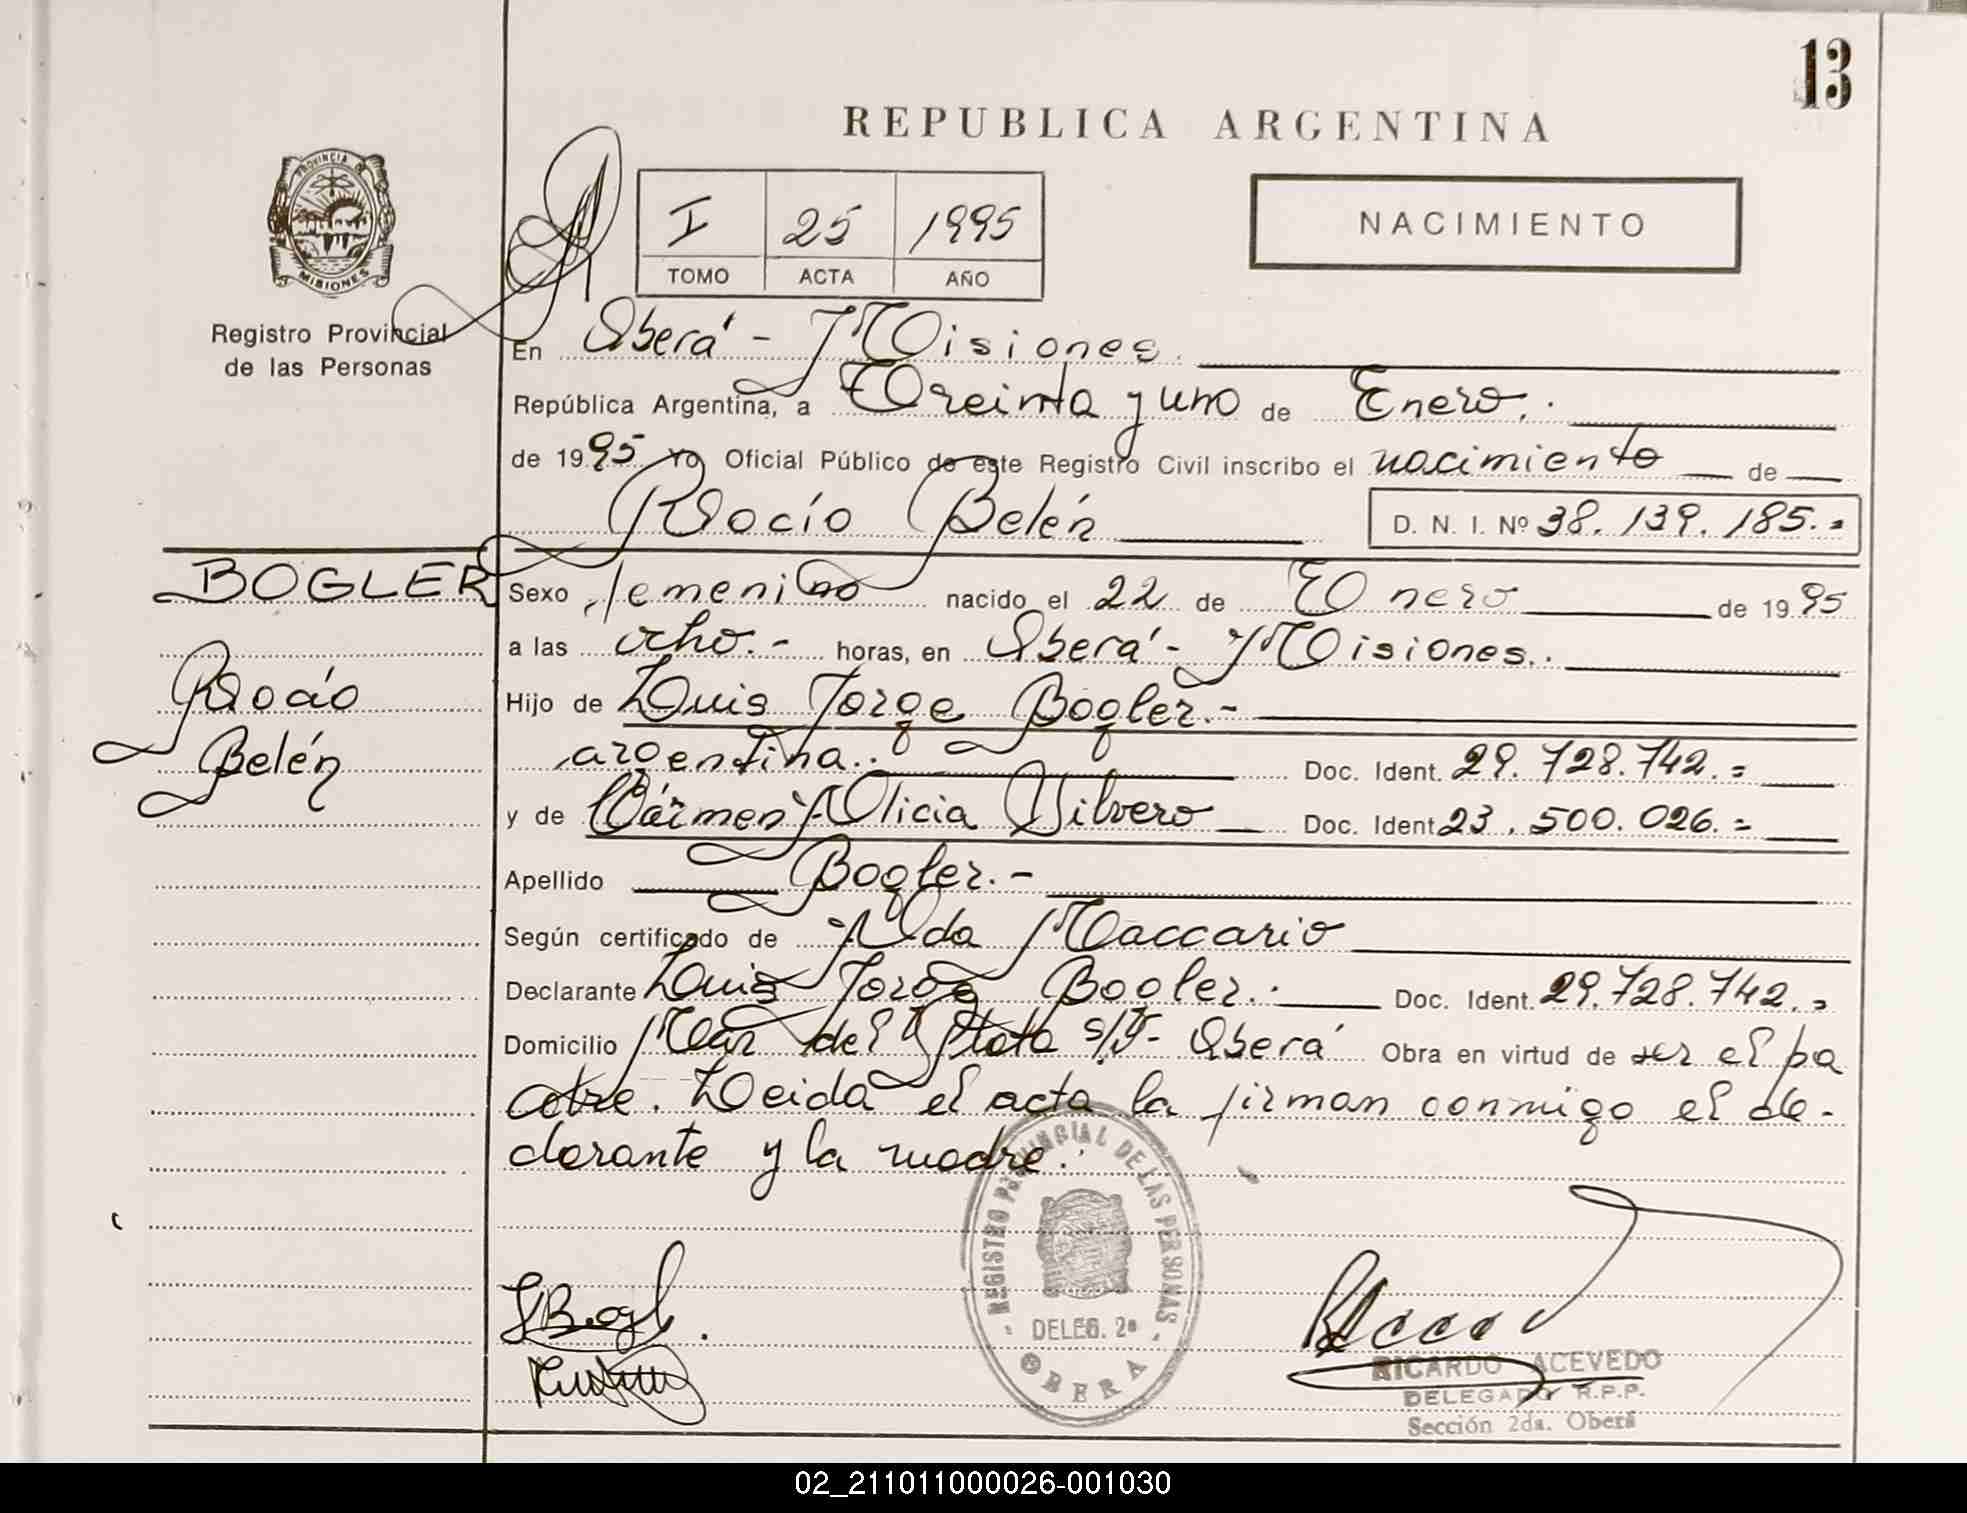 13
REPUBLICA ARGENTINA
PROVINCIA DE
MISIONES
Registro Provincial
de las Personas
I 25 1995
TOMO ACTA AÑO
NACIMIENTO
En Oberá - Misiones.
República Argentina, a Treinta y uno de Enero.
de 1995 Yo Oficial Público de este Registro Civil inscribo el nacimiento de
Rocío Belén D. N. I. Nº 38.139.185.=
BOGLER
Rocío
Belén
Sexo femenino nacido el 22 de Enero de 1995
a las ocho.- horas, en Oberá - Misiones.
Hijo de Luis Jorge Bogler.-
argentina. Doc. Ident. 29.728.742.=
y de Cármen Alicia Silvero Doc. Ident. 23.500.026.=
Apellido Bogler.-
Según certificado de Ada Maccario
Declarante Luis Jorge Bogler. Doc. Ident. 29.728.742.=
Domicilio Mar del Plata s/Nº- Oberá Obra en virtud de ser el pa
dre. Leida el acta la firman conmigo el de-
clarante y la madre.
REGISTRO PROVINCIAL DE LAS PERSONAS
DELEG. 2ª
OBERA
RICARDO ACEVEDO
DELEGADO R.P.P.
Sección 2da. Oberá
02_211011000026-001030